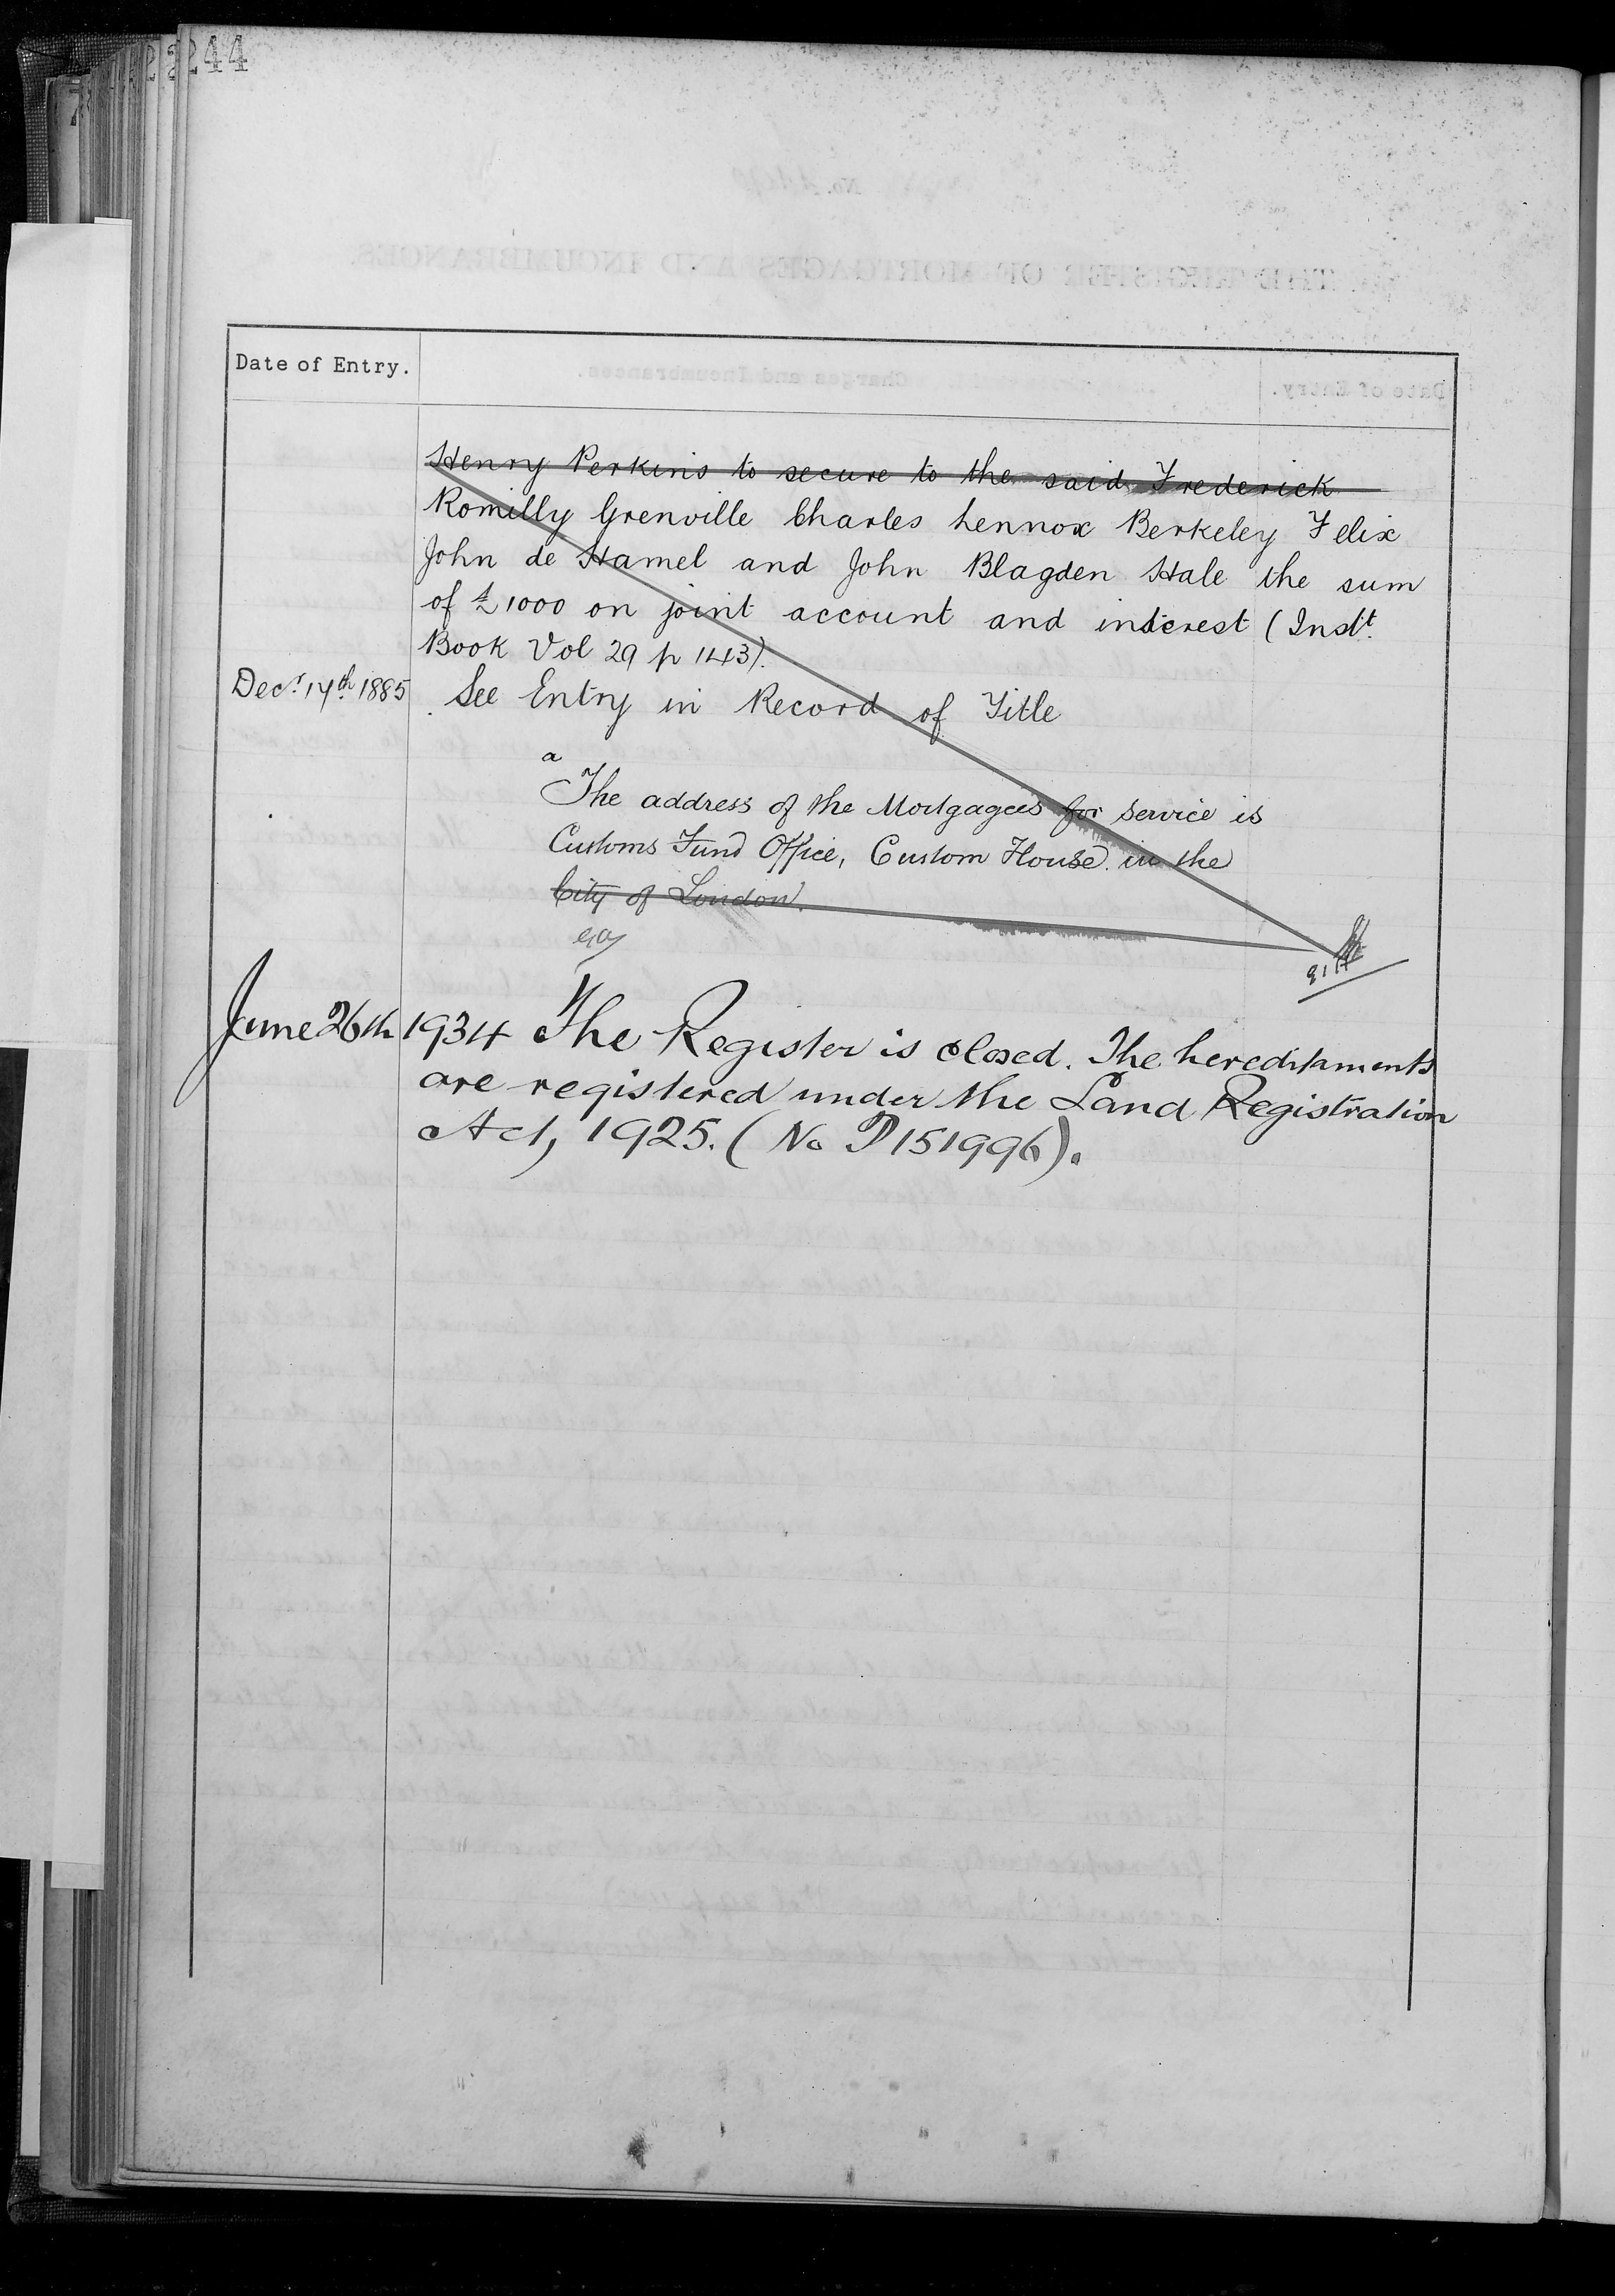 244
Date of Entry.
Henry Perkins to secure to the said Frederick
Romilly Grenville Charles Lennox Berkeley Felix
John de Hamel and John Blagden Hale the sum
of £1000 on joint account and interest (Instt.
Book Vol 29 p 143).
Decr. 17th 1885 See Entry in Record of Title
a
The address of the Mortgagees for service is
Customs Fund Office, Custom House in the
City of London.
June 26th 1934 The Register is closed. The hereditaments
are registered under the Land Registration
Act, 1925. (No P151996).